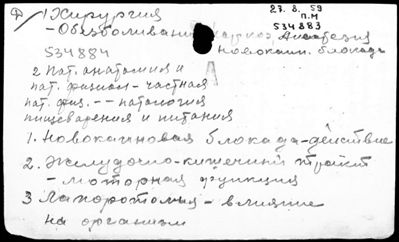 27.8.59
П.М
534883
Ф/1 Хирургия
- Обезболивание наркоз Анестезия
534884 новокаин. блокада
2 Пат. анатомия и
пат. физиол - частная
пат. физ. -- патология
пищеварения и питания
1. Новокаиновая блокада-действие
2. Желудочно-кишечный тракт
- моторная функция
3 Лапоротомия - влияние
на организм